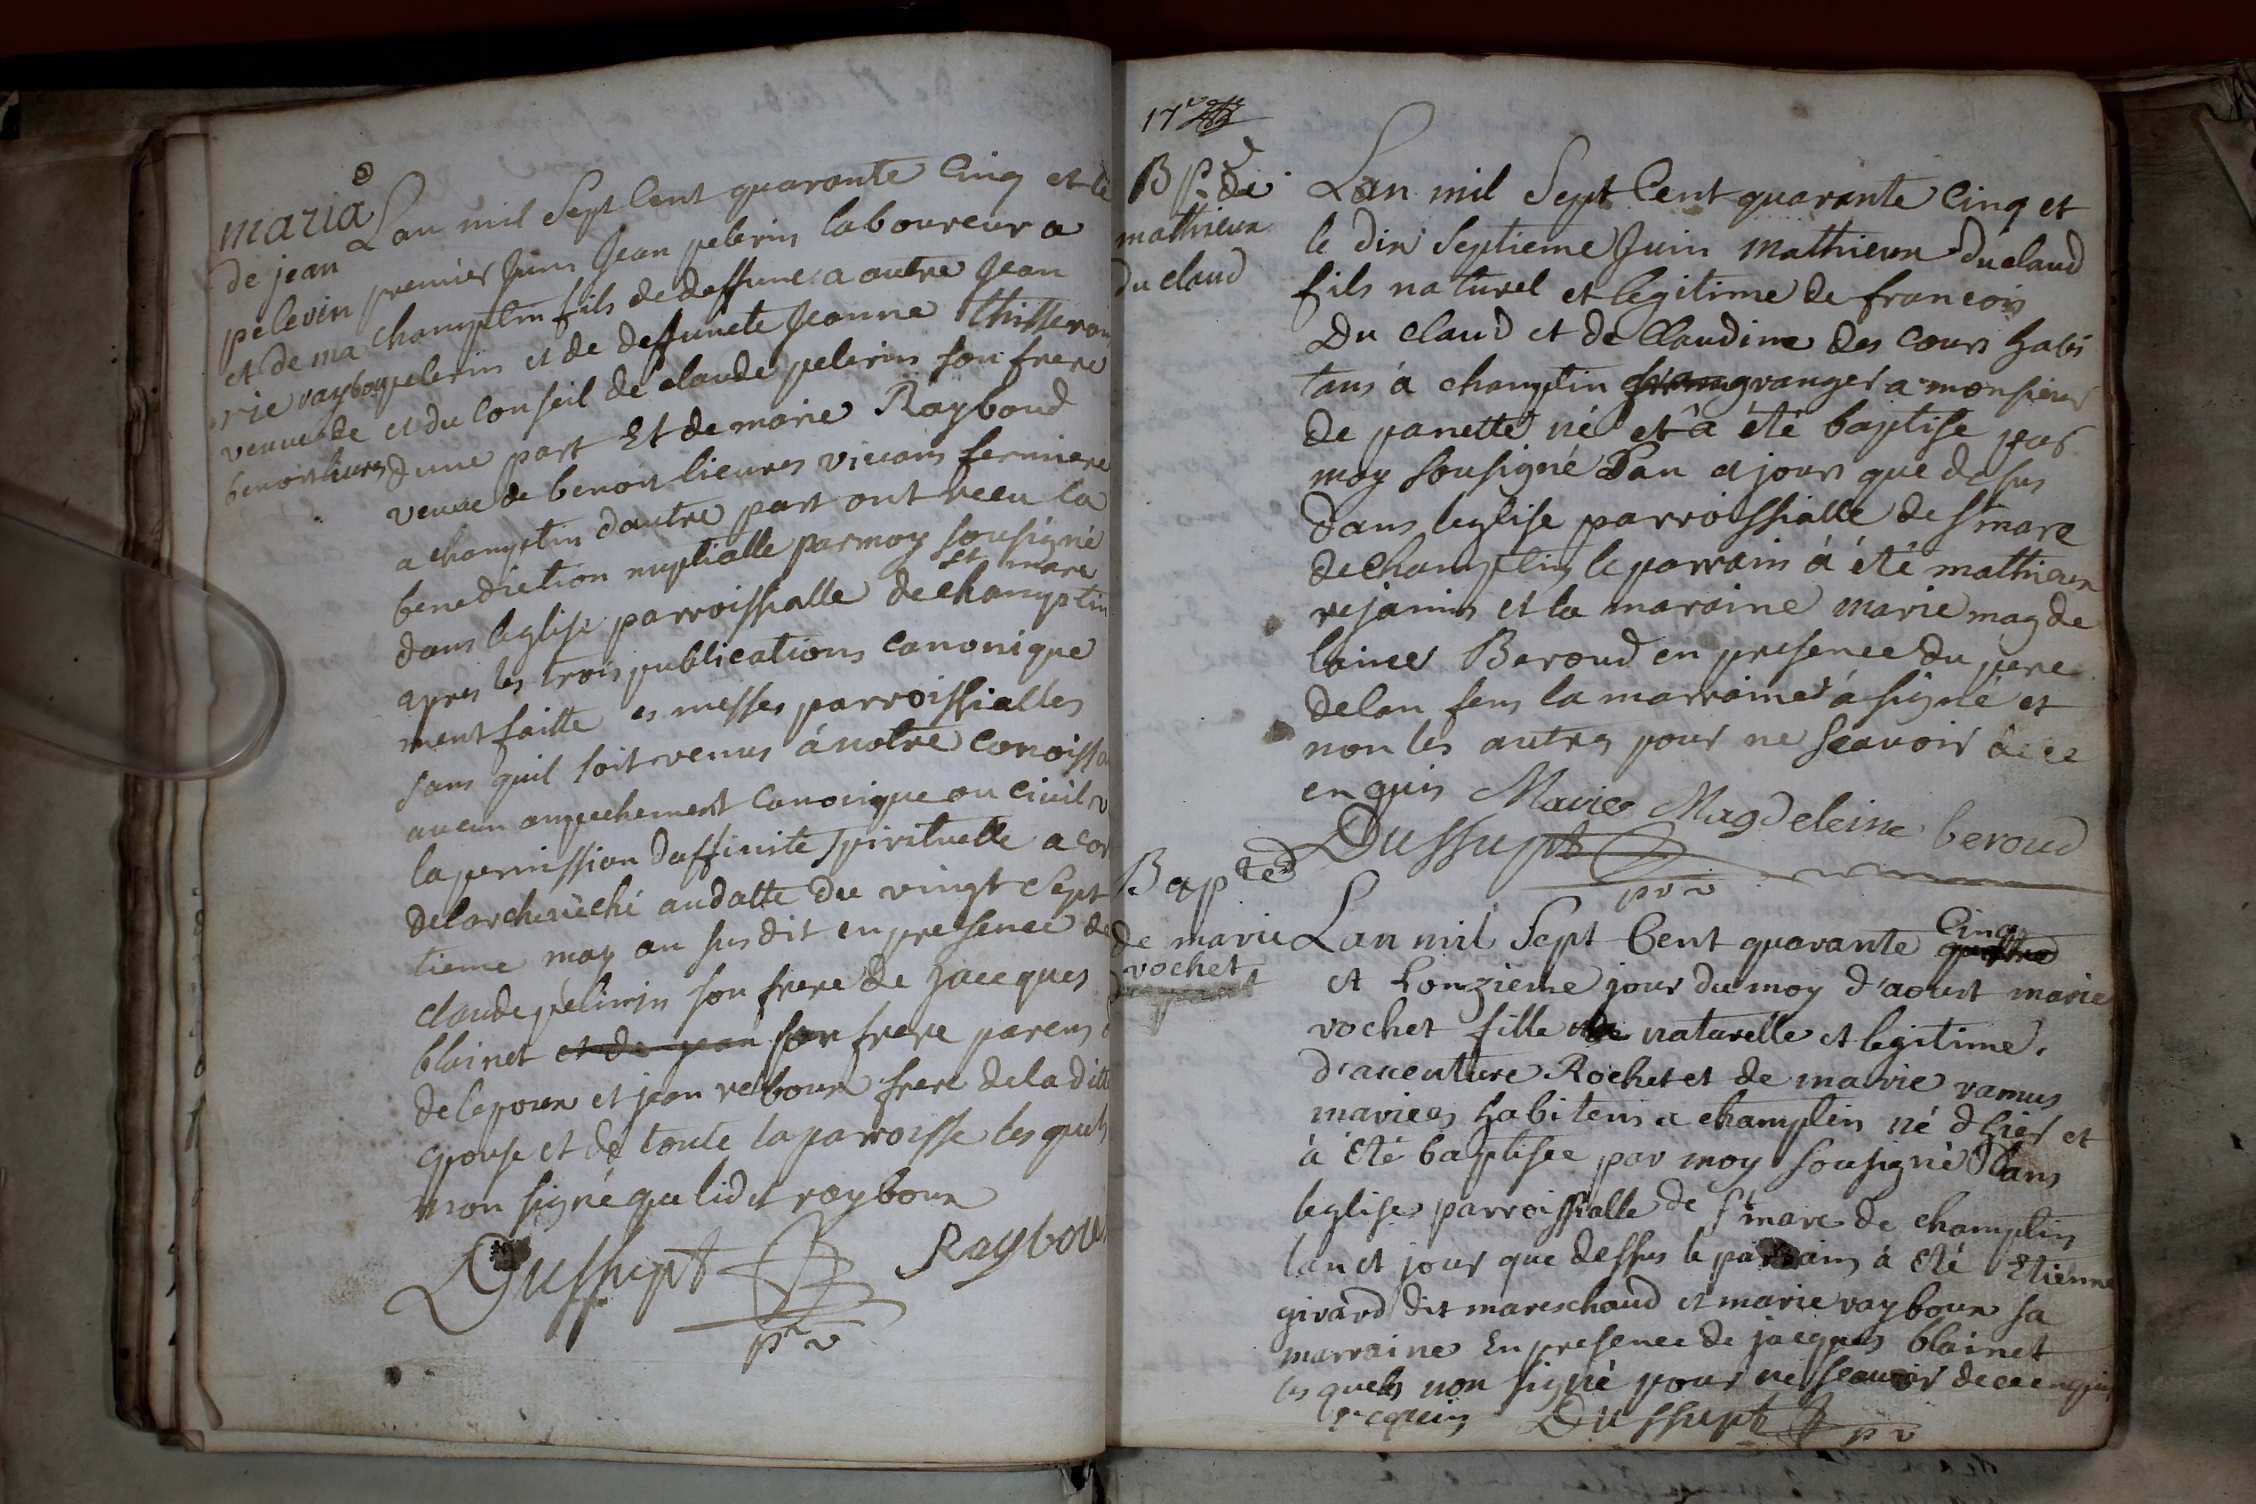 maria
de jean
pelerin
et de ma
rie raybou
veuue de
benoit lieures
Lan mil Sept Cent quarante Cinq et le
premier Juin Jean pelerin laboureur a
champtin fils de deffunc a autre Jean
pelerin et de deffuncte Jeanne thisseran
et du Conseil de claude pelerin son frere
dune part Et de marie Raybond
veuue de benoit lieures viuans fermiere
a champtin dautre part ont receu la
benediction nuptialle par moy sousigné
dans leglise parroissialle de St marc champtin
apres les trois publications canonique
ment faitte es messes parroissialles
sans quil soit venus à notre conoissa
aucun anpechement canonique ou Ciuil v
la permission daffinité spirituelle acor
de larcheuèché audatte du vingt Sept
tieme may an susdit en presence de
claude pelirin son frere de Jacques
blainet et de jean son frere parens
de lepoux et jean reboux frere dela ditte
epouse et de toute la parroisse les quels
non signé que lidit rayboux
Dussupt Rayboux
pr v
17
B p. de
mathieux
du claud
Lan mil Sept Cent quarante Cinq et
le dix septieme Juin mathieux duclaud
fils naturel et legitime de francois
Du claud et de Claudine des cours habi
tans à champtin granger a monsieur
de panette né et à été baptise par
moy sousigné Lan et jour que desus
dans leglise parroissialle de St marc
de champtin le parrain à été mathieux
rejanin et la maraine marie magde
laine Beroud en presence du pere
delan fens la marraine à signé et
non les autres pour ne scauoir de ce
enquis Marie Magdeleine beroud
Dussupt
pr v
Bapte
de marie
rochet
Lan mil Sept Cent quarante Cinq quattre
et Lonzieme jour du moy d'aoust marie
rochet fille naturelle et legitime
d'auenture Rochet et de marie ramus
mariees habitens a champtin né dhier et
à été baptisee par moy sousigné Dans
leglise parroissialle de St marc de champtin
lan et jour que dessus le parrain à été Etienne
girard dit mareschaud et marie rayboux sa
marraine En presence de jacques blainet
les quels non signé pour ne scauoir de ce enquis
requis Dussupt pr v